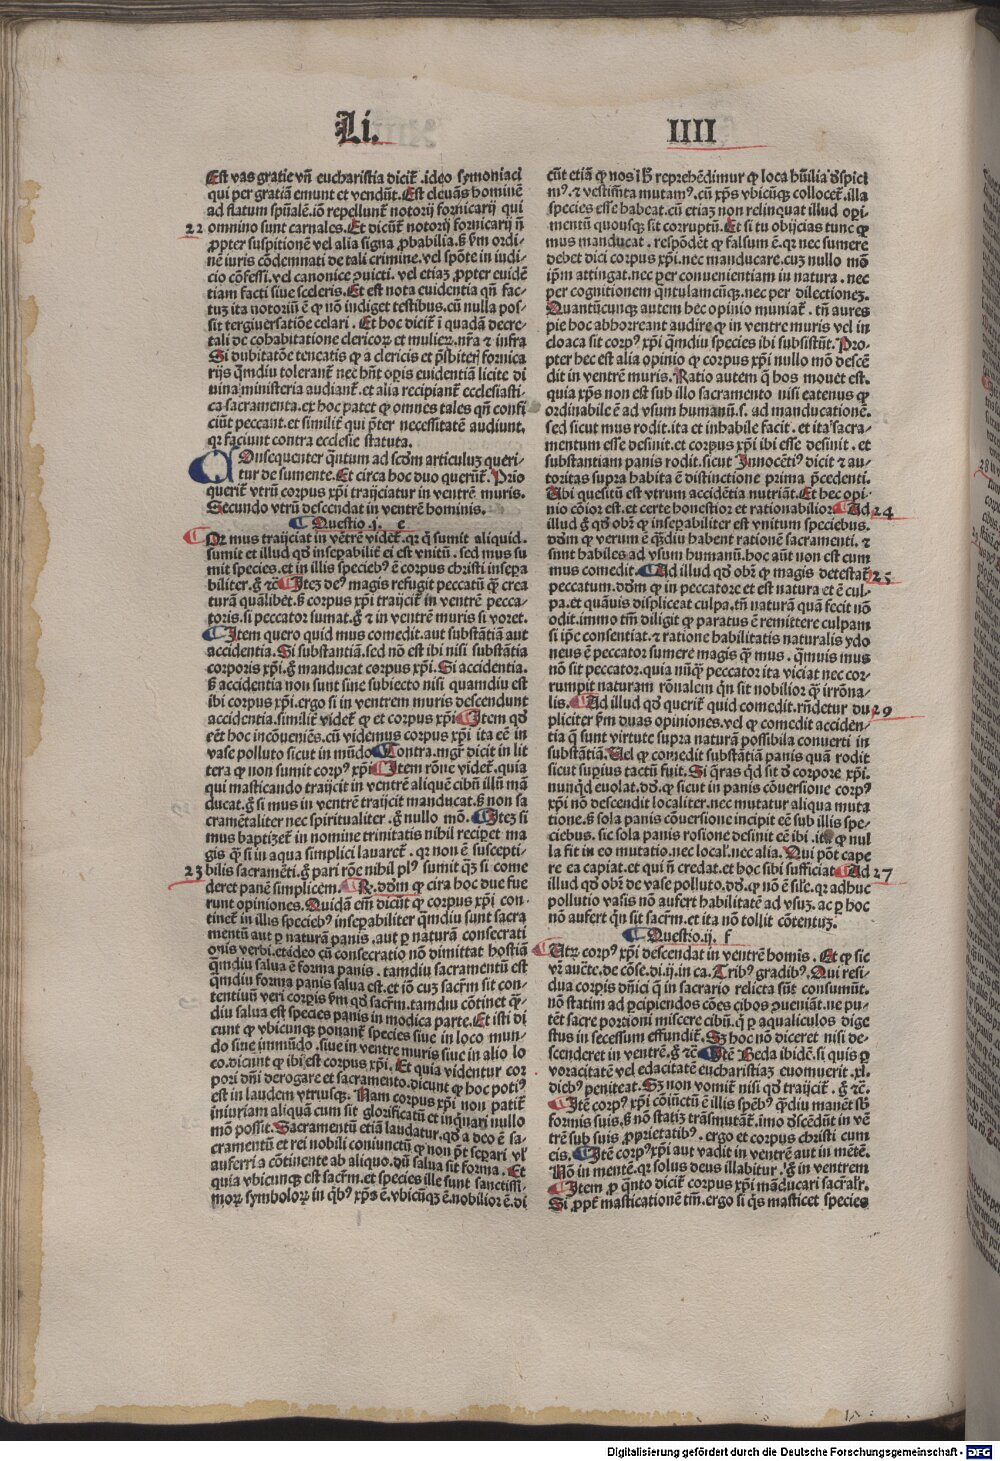 Li.
IIII
Est vas gratie vñ eucharistia dicit᷑ .ideo symoniaci
qui per gratiã emunt et vendũt. Est eleuãs hominẽ
ad statum spũalẽ .iõ repellunt᷑ notorij fornicarij qui
22 omnino sunt carnales. Et dicũt᷑ notorij fornicarij ñ
ꝓpter suspitionẽ vel alia signa ꝓbabilia. sꝫ ẜm ordi-
nẽ iuris cõdemnati de tali crimine. vel spõte in iudi-
cio cõfessi. vel canonice ꝯuicti. vel etiaꝫ ꝓpter euidẽ
tiam facti siue sceleris. Et est nota euidentia qñ fac-
tuꝫ ita notoriũ ẽ ꝙ nõ indiget testibus. cũ nulla pos-
sit tergiuersatiõe celari . Et hoc dicit᷑ ĩ quadã decre-
tali de cohabitatione clericoꝝ et mulieꝝ. nr̃a ⁊ infra
Si dubitatõe teneatis ꝙ a clericis et p̃sbiteri fornica
rijs q̃mdiu tolerant᷑ nec hñt oꝑis euidentiã licite di
uina ministeria audiant᷑. et alia recipiant᷑ ecclesiasti-
ca sacramenta. ex hoc patet ꝙ omnes tales qñ confi
ciũt peccant. et similit᷑ qui p̃ter necessitatẽ audiunt.
qꝛ faciunt contra ecclesie statuta.
COnsequenter q̃ntum ad scḋm articuluꝫ queri-
tur de sumente. Et circa hoc duo querũt᷑. Prio
querit᷑ vtrũ corpus xp̃i traijciatur in ventrẽ muris.
Secundo vtrũ descendat in ventrẽ hominis.
Questio .j. e
QꝪ mus traijciat in vẽtrẽ videt᷑. qꝛ q̃ sumit aliquid.
sumit et illud qḋ inseꝑabilit᷑ ei est vnitũ . sed mus su
mit species. et in illis speciebꝰ ẽ corpus christi inseꝑa
biliter. g̊ ⁊c̃ Iteꝫ deꝰ magis refugit peccatũ q̃ crea
turã quãlibet. sꝫ corpus xp̃i traijcit᷑ in ventrẽ pecca-
toris. si peccator sumat. g̊ ⁊ in ventrẽ muris si voret.
Item quero quid mus comedit. aut substãtiã aut
accidentia. Si substantiã. sed nõ est ibi nisi substãtia
corporis xp̃i. g̊ manducat corpus xp̃i. Si accidentia.
sꝫ accidentia non sunt sine subiecto nisi quamdiu est
ibi corpus xp̃i. ergo si in ventrem muris descendunt
accidentia. similit᷑ videt᷑ ꝙ et corpus xp̃i Item qḋ
eẽt hoc incõueniẽs. cũ videmus corpus xp̃i ita eẽ in
vase polluto sicut in mũdo Contra. mgr̃ dicit in lit
tera ꝙ non sumit corpꝰ xp̃i Item rõne videt᷑. quia
qui masticando traijcit in ventrẽ aliquẽ cibũ illũ mã
ducat. g̊ si mus in ventrẽ traijcit manducat. sꝫ non sa
cramẽtaliter nec spiritualiter. g̊ nullo mõ. Iteꝫ si
mus baptizet᷑ in nomine trinitatis nihil recipet ma
gis q̃ si in aqua simplici lauaret᷑. qꝛ non ẽ suscepti-
23 bilis sacramẽti. g̊ pari rõe nihil plꝰ sumit q̃ꝫ si come
deret panẽ simplicem. R. dḋm ꝙ cira hoc due fue
runt opiniones. Quidã em̃ dicũt ꝙ corpus xp̃i con-
tinet᷑ in illis speciebꝰ inseꝑabiliter q̃mdiu sunt sacra
mentũ aut ꝑ naturã panis . aut ꝑ naturã consecrati
onis verbi. et ideo cũ consecratio nõ dimittat hostiã
q̃mdiu salua ẽ forma panis . tamdiu sacramentũ est
q̃mdiu forma panis salua est. et iõ cuꝫ sacr̃m sit con-
tentiuũ veri corꝑis ẜm qḋ sacr̃m. tamdiu cõtinet q̃-
diu salua est species panis in modica parte. Et isti di
cunt ꝙ vbicunqꝫ ponant᷑ species siue in loco mun-
do siue inmũdo . siue in ventre muris siue in alio lo
co. dicunt ꝙ ibi est corpus xp̃i. Et quia videntur cor
pori dñi derogare et sacramento. dicunt ꝙ hoc potiꝰ
est in laudem vtriusqꝫ. Nam corpus xp̃i non patit᷑
iniuriam aliquã cum sit glorificatũ et inq̃nari nullo
mõ possit. Sacramentũ etiã laudatur. qḋ a deo ẽ sa-
cramentũ et rei nobili coniunctũ ꝙ non p̃t seꝑari vl̕
auferri a cõtinente ab aliquo. dũ salua sit forma. Et
quia vbicunqꝫ est sacr̃m. et species ille sunt sanctissi-
moꝝ symboloꝝ in q̃bꝰ xp̃s ẽ. vbicũqꝫ ẽ. nobilior ẽ. di
cũt etiã ꝙ nos ĩ hꝫ reprehẽdimur ꝙ loca hũilia dispici
mꝰ. ⁊ vestim̃ta mutamꝰ. cũ xp̃s vbicũqꝫ collocet᷑. illa
species esse habeat. cũ etiaꝫ non relinquat illud opi-
mentũ quousqꝫ sit corruptũ. Et si tu obijcias tunc ꝙ
mus manducat . respõdet᷑ ꝙ falsum ẽ. qꝛ nec sumere
debet dici corpus xp̃i. nec manducare. cuꝫ nullo mõ
ip̃m attingat. nec per conuenientiam in natura . nec
per cognitionem q̃ntulamcũqꝫ. nec per dilectioneꝫ.
Quantũcunqꝫ autem hec opinio muniat᷑ . tñ aures
pie hoc abhorreant audire ꝙ in ventre muris vel in
cloaca sit corpꝰ xp̃i q̃mdiu species ibi subsistũt. Pro-
pter hec est alia opinio ꝙ corpus xp̃i nullo mõ descẽ
dit in ventrẽ muris. Ratio autem q̃ hos mouet est.
quia xp̃s non est sub illo sacramento nisi eatenus ꝙ
ordinabile ẽ ad vsum humanũ. s. ad manducationẽ.
sed sicut mus rodit. ita et inhabile facit . et ita sacra-
mentum esse desinit. et corpus xp̃i ibi esse desinit . et
substantiam panis rodit. sicut Innocẽtiꝰ dicit ⁊ au-
toritas supra habita ẽ distinctione prima p̃cedenti.
Ubi quesitũ est vtrum accidẽtia nutriãt. Et hec opi-
nio cõior est. et certe honestior et rationabilior. Ad 24
illud g̊ qḋ obr̃ ꝙ inseꝑabiliter est vnitum speciebus.
dḋm ꝙ verum ẽ q̃ꝫdiu habent rationẽ sacramenti. ⁊
sunt habiles ad vsum humanũ. hoc aũt non est cum
mus comedit. Ad illud qḋ obr̃ ꝙ magis detestat᷑ 25
peccatum. dḋm ꝙ in peccatore et est natura et ẽ cul-
pa. et quãuis displiceat culpa. tñ naturã quã fecit nõ
odit. immo tm̃ diligit ꝙ paratus ẽ remittere culpam
si ip̃e consentiat. ⁊ ratione habilitatis naturalis ydo
neus ẽ peccator sumere magis q̃ mus . q̃muis mus
nõ sit peccator. quia nũq̃ peccator ita viciat nec cor-
rumpit naturam rõnalem q̃n sit nobilior q̃ irrõna-
lis. Ad illud qḋ querit᷑ quid comedit. rñdetur du 29
pliciter ẜm duas opiniones. vel ꝙ comedit acciden-
tia q̃ sunt virtute supra naturã possibila conuerti in
substãtiã. Vel ꝙ comedit substãtiã panis quã rodit
sicut suꝑius tactũ fuit. Si q̃ras qḋ sit ḋ corpore xp̃i.
nunqḋ euolat. dḋ. ꝙ sicut in panis cõuersione corpꝰ
xp̃i nõ descendit localiter. nec mutatur aliqua muta
tione. sꝫ sola panis cõuersione incipit eẽ sub illis spe-
ciebus. sic sola panis rosione desinit eẽ ibi . ita ꝙ nul
la fit in eo mutatio. nec local̕. nec alia. Qui põt cape
re ea capiat. et qui ñ credat. et hoc sibi sufficiat Ad 27
illud qḋ obr̃ de vase polluto. dḋ. ꝙ nõ ẽ sil̕e. qꝛ adhuc
pollutio vasis nõ aufert habilitatẽ ad vsuꝫ. ac ꝑ hoc
nõ aufert q̃n sit sacr̃m. et ita nõ tollit cõtentuꝫ.
Questio .ij. f
Utrꝫ corpꝰ xp̃i descendat in ventrẽ homĩs. Et ꝙ sic
vr̃ auct̃e. de cõse. di. ij. in ca. Tribꝰ gradibꝰ. Qui resi-
dua corꝑis dñici q̃ in sacrario relicta sũt consumũt.
nõ statim ad ꝑcipiendos cões cibos ꝓueniãt. ne pu-
tẽt sacre portioni miscere cibũ. q̃ ꝑ aqualiculos dige
stus in secessum effundit᷑. Sꝫ hoc nõ diceret nisi de-
scenderet in ventrẽ. g̊ ⁊c̃ Itẽ Beda ibidẽ. si quis ꝑ
voracitatẽ vel edacitatẽ eucharistiaꝫ euomuerit .xl.
diebꝰ peniteat. Sꝫ non vomit᷑ nisi qḋ traijcit᷑ . g̊ ⁊c̃.
Itẽ corpꝰ xp̃i cõiũctũ ẽ illis spẽbꝰ q̃diu manẽt sb̃
formis suis. sꝫ nõ statiꝫ trãsmutãt᷑. imo descẽdũt in vẽ
trẽ sub suis ꝓprietatibꝰ . ergo et corpus christi cum
eis. Itẽ corpꝰ xp̃i aut vadit in ventrẽ aut in mẽtẽ.
Nõ in mentẽ. qꝛ solus deus illabitur. g̊ in ventrem
Item ꝓ q̃nto dicit᷑ corpus xp̃i mãducari sacr̃alr̃.
Si ꝓpt᷑ masticationẽ tm̃. ergo si q̃s masticet species
Digitalisierung gefördert durch die Deutsche Forschungsgemeinschaft - DFG